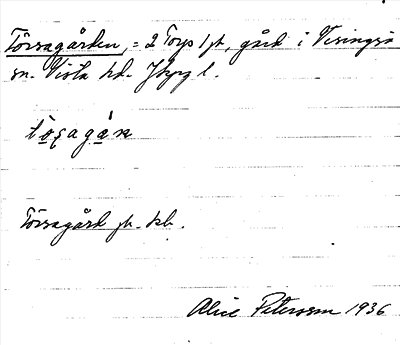 Torsagården, = 2 Torp 1/4, gård i Visingsö
sn. Vista hd. Jkpg l.
to̲ʂaga̲ń
Torsagård jb. kb.
Alice Petersson 1936